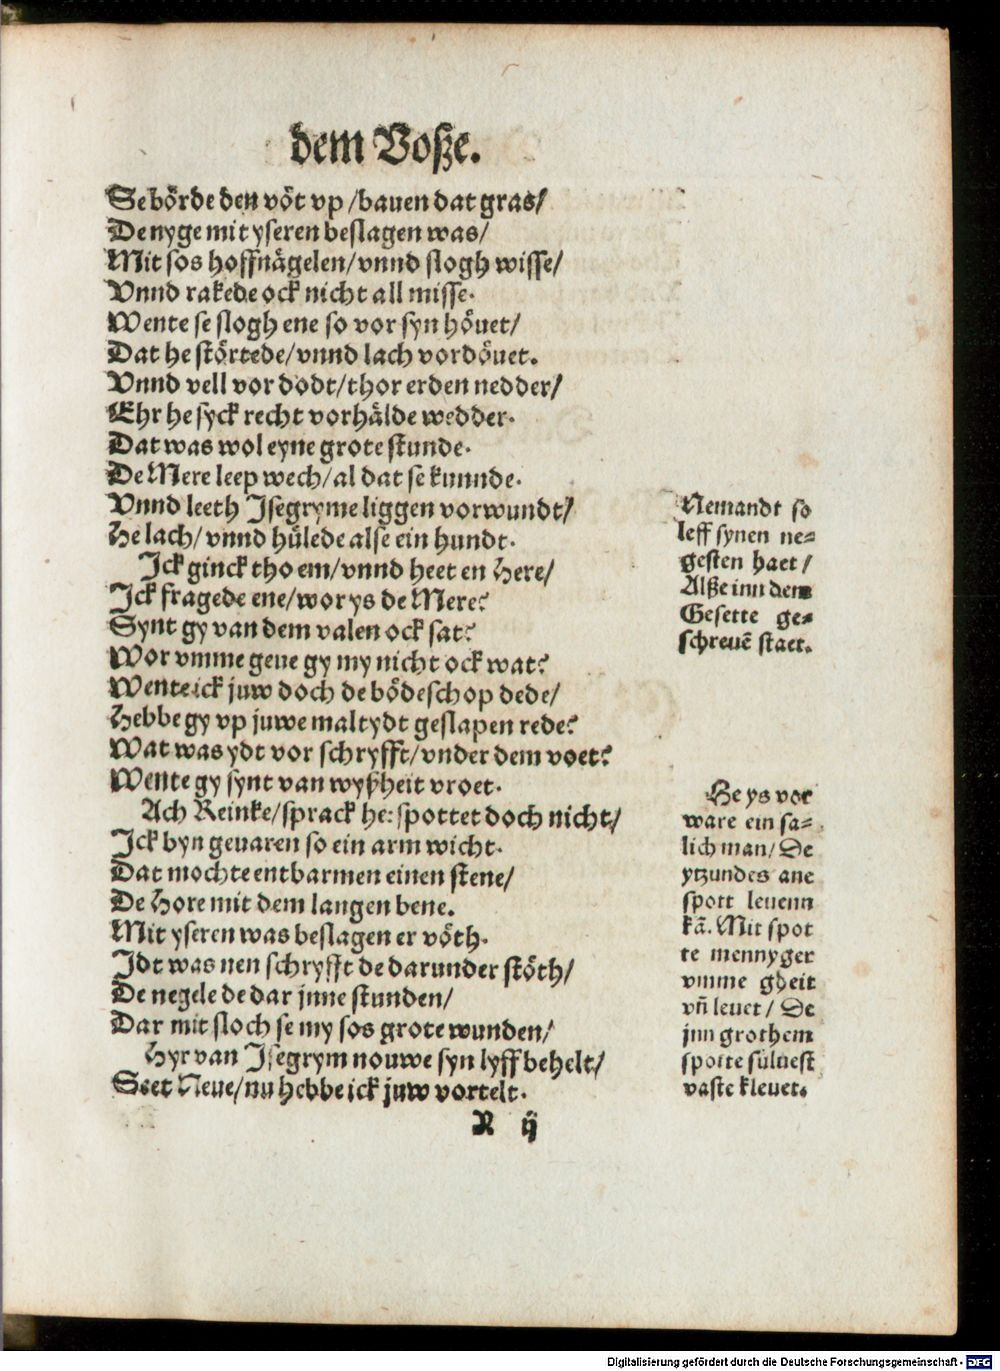 dem Voſze.
Se börde den vöt vp /bauen dat gras/
De nyge mit yſeren beſlagen was/
Mit ſos hoffnägelen/vnnd ſlogh wiſſe/
Vnnd rakede ock nicht all miſſe.
Wente ſe ſlogh ene ſo vor ſyn höuet/
Dat he ſtörtede/vnnd lach vordöuet.
Vnnd vell vor dodt/thor erden nedder/
Ehr he ſyck recht vorhälde wedder.
Dat was wol eyne grote ſtunde.
De Mere leep wech/al dat ſe kunnde.
Vnnd leeth Jſegryme liggen vorwundt/
He lach/vnnd hülede alſe ein hundt.
Jck ginck tho em/vnnd heet en Here/
Jck fragede ene/wor ys de Mere?
Synt gy van dem valen ock ſat?
Wor vmme geue gy my nicht ock wat?
Wente ick juw doch de bödeſchop dede/
Hebbe gy vp juwe maltydt geſlapen rede?
Wat was ydt vor ſchryfft/vnder dem voet?
Wente gy ſynt van wyßheit vroet.
Ach Reinke/ſprack he: ſpottet doch nicht/
Jck byn geuaren ſo ein arm wicht.
Dat mochte entbarmen einen ſtene/
De Hore mit dem langen bene.
Mit yſeren was beſlagen er vöth.
Jdt was nen ſchryfft de darunder ſtöth/
De negele de dar jnne ſtunden/
Dar mit ſloch ſe my ſos grote wunden/
Hyr van Jſegrym nouwe ſyn lyff behelt/
Seet Neue/nu hebbe ick juw vortelt.
R ij
Nemandt ſo
leff ſynen ne⸗
geſten haet /
Alſze inn dem
Geſette ge⸗
ſchreuē ſtaet.
He ys vor
ware ein ſa⸗
lich man/ De
ytzundes ane
ſpott leuenn
kā. Mit ſpot
te mennyger
vmme gheit
vn̄ leuet / De
jnn grothem
ſpotte ſulueſt
vaſte kleuet.
Digitalisierung gefördert durch die Deutsche Forschungsgemeinschaft - DFG